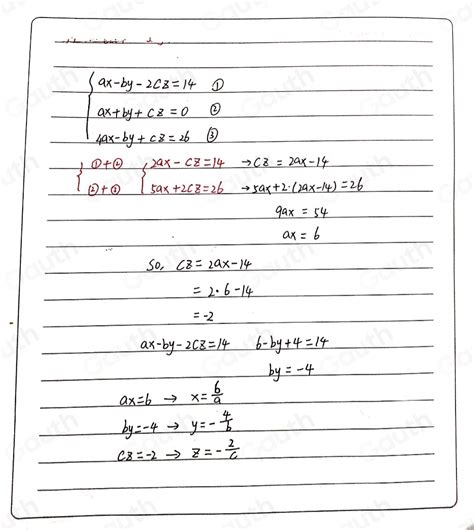 ax-by-2cz=14 ①
ax+by+cz=0 ②
4ax-by+cz=26 ③
①+② 2ax-cz=14 →cz=2ax-14
②+③ 5ax+2cz=26 →5ax+2·(2ax-14)=26
9ax=54
ax=6
So, cz=2ax-14
=2·6-14
=-2
ax-by-2cz=14 6-by+4=14
by=-4
ax=6 → x=6/a
by=-4 → y=-4/b
cz=-2 → z=-2/c
Gauth